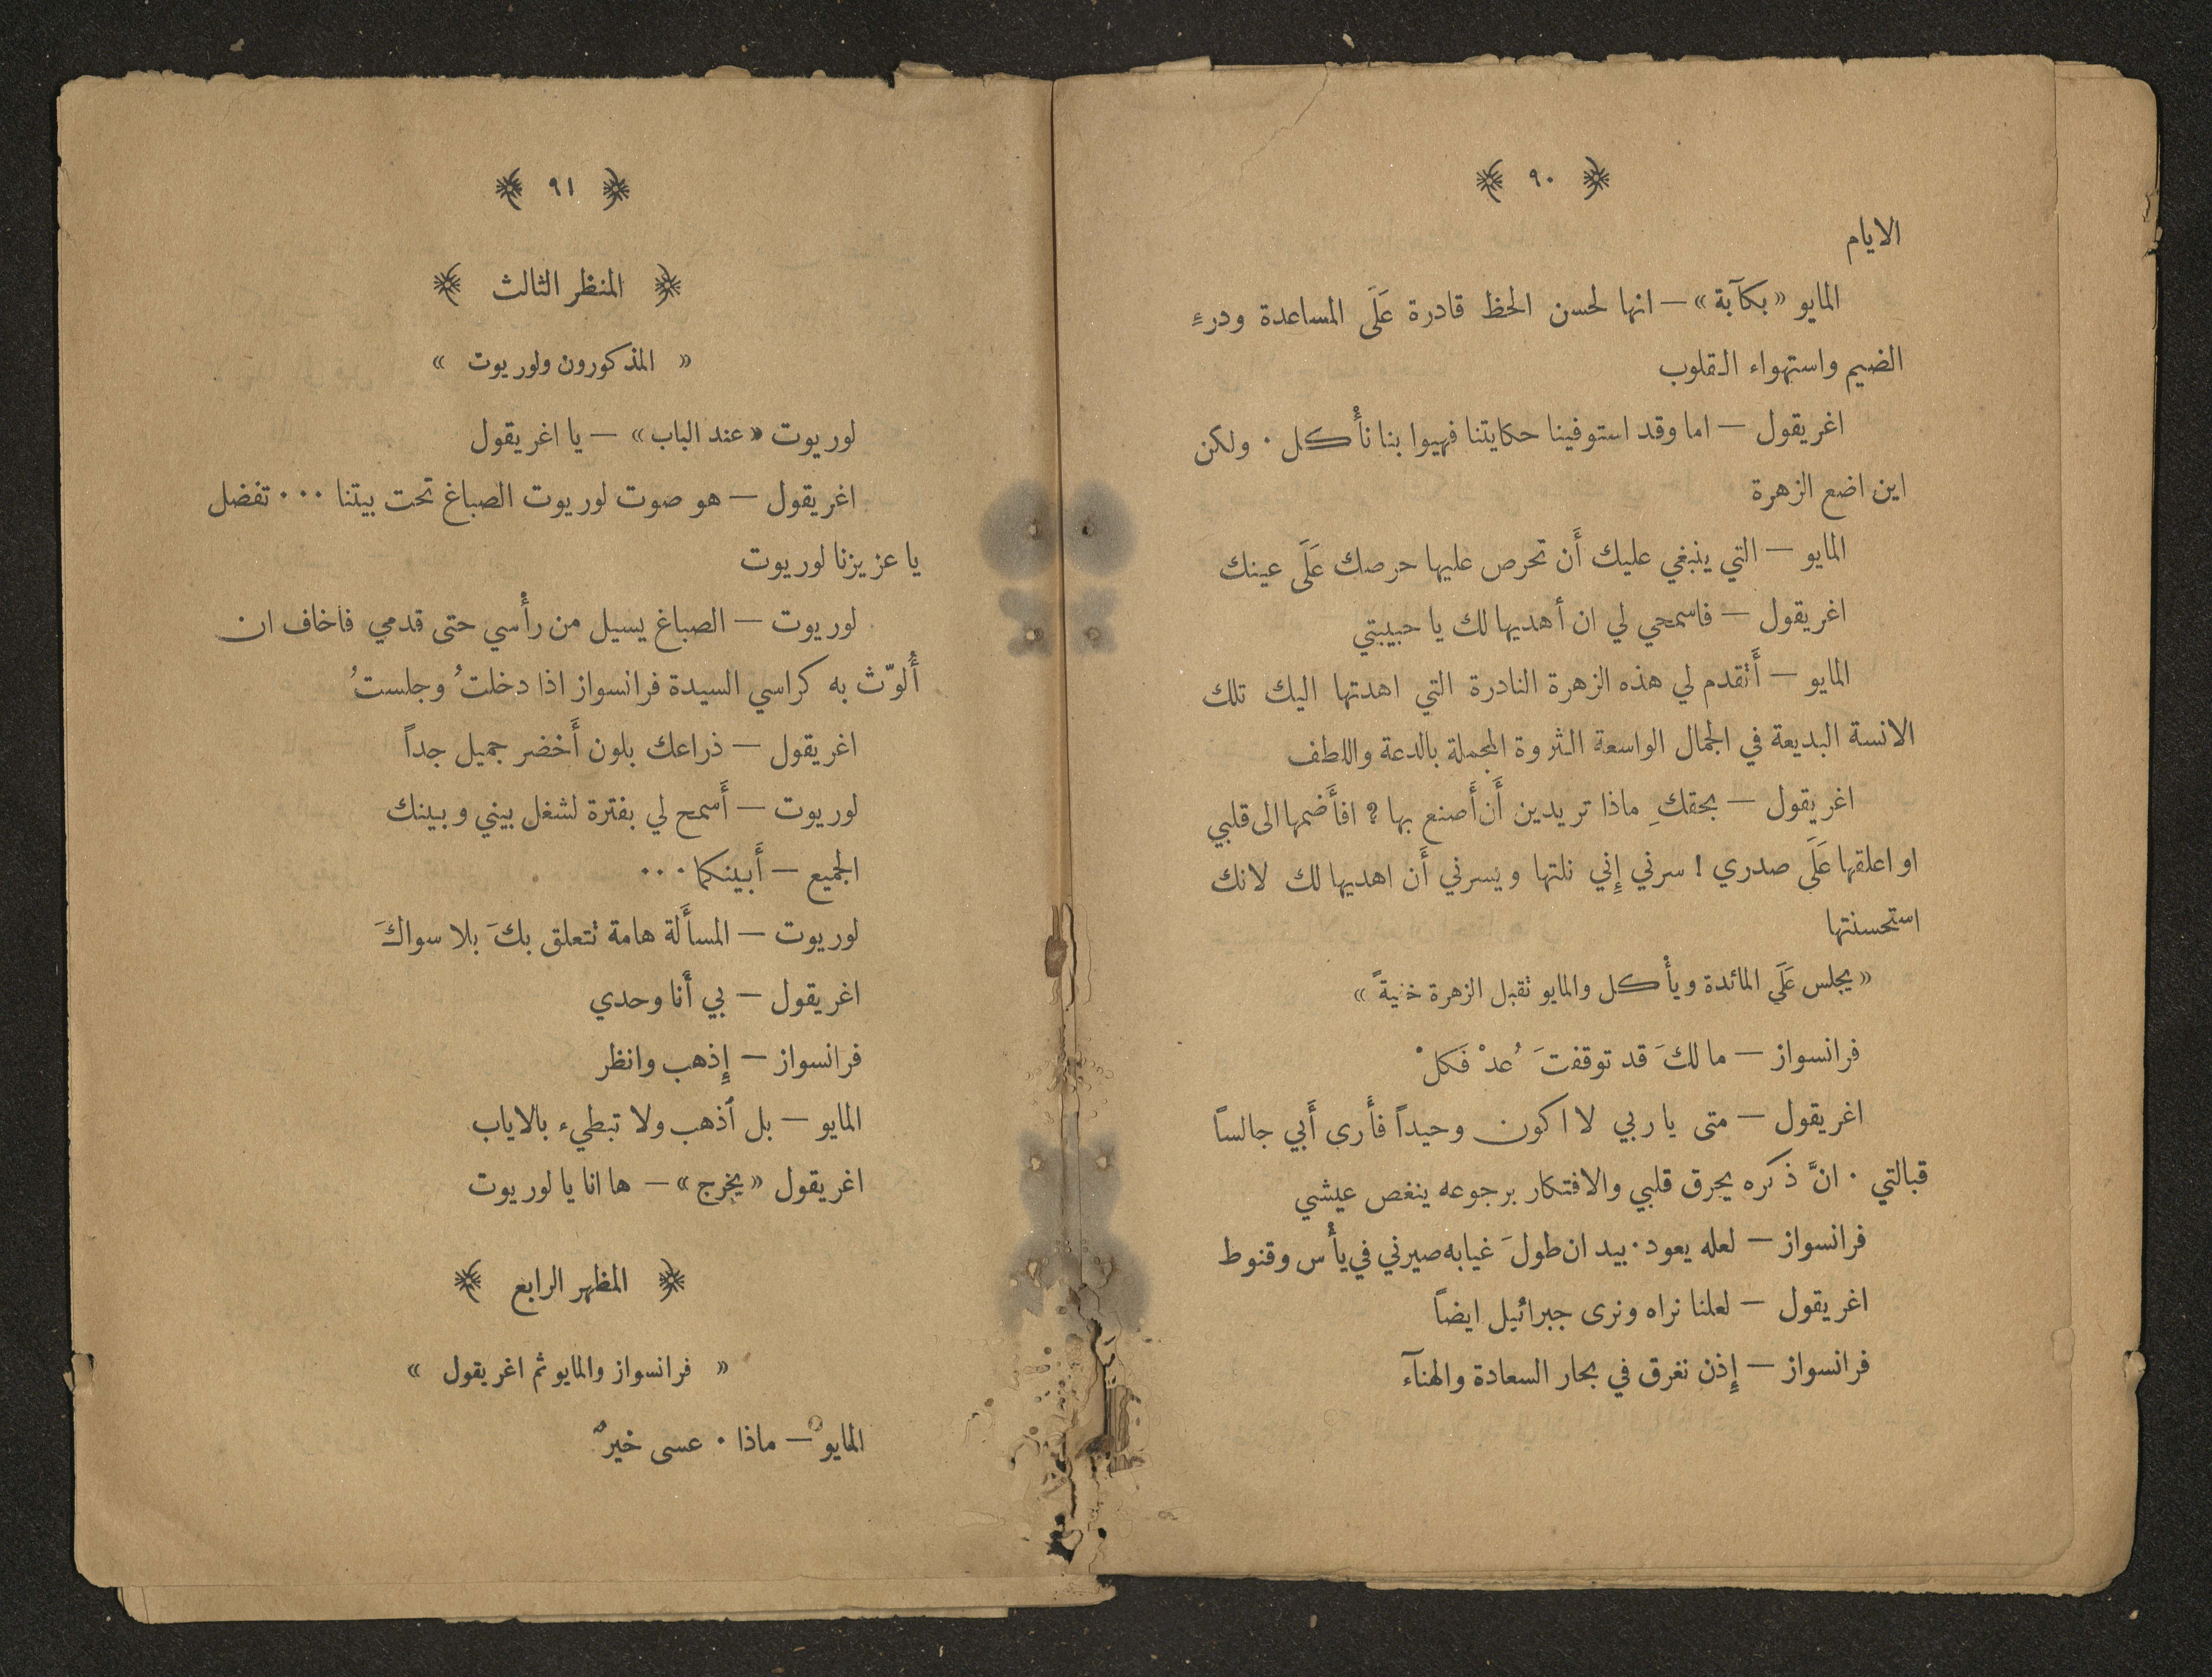 ٩٠
الايام
المايو «بكآبة» — انها لحسن الحظ قادرة عَلَى المساعدة ودرءِ
الضيم واستهواء القلوب
اغريقول — اما وقد استوفينا حكايتنا فهيوا بنا نأْكل ٠ ولكن
اين اضع الزهرة
المايو — التي ينبغي عليك أَن تحرص عليها حرصك عَلَى عينك
اغريقول — فاسمحي لي ان أهديها لك يا حبيبتي
المايو — أَتقدم لي هذه الزهرة النادرة التي اهدتها اليك تلك
الانسة البديعة في الجمال الواسعة الثروة المجملة بالدعة واللطف
اغريقول — بحقكِ ماذا تريدين أَن أَصنع بها ؟ افأَضمها الى قلبي
او اعلقها عَلَى صدري ! سرني إِني نلتها ويسرني أَن اهديها لك لانك
استحسنتها
«يجلس عَلَى المائدة ويأْكل والمايو تقبل الزهرة خفيةً»
فرانسواز — ما لكَ قد توقفتَ عُدْ فَكلْ
اغريقول — متى يا ربي لا اكون وحيداً فأَرى أَبي جالساً
قبالتي ٠ انَّ ذكره يحرق قلبي والافتكار برجوعه ينغص عيشي
فرانسواز — لعله يعود ٠ بيد ان طولَ غيابه صيرني في يأْس وقنوط
اغريقول — لعلنا نراه ونرى جبرائيل ايضاً
فرانسواز — إِذن نغرق في بحار السعادة والهنآء
٩١
المنظر الثالث
« المذكورون ولوريوت »
لوريوت «عند الباب» — يا اغريقول
اغريقول — هو صوت لوريوت الصباغ تحت بيتنا ٠٠٠ تفضل
يا عزيزنا لوريوت
لوريوت — الصباغ يسيل من رأْسي حتى قدمي فاخاف ان
أُلوّث به كراسي السيدة فرانسواز اذا دخلتُ وجلستُ
اغريقول — ذراعك بلون أَخضر جميل جداً
لوريوت — أَسمح لي بفترة لشغل بيني وبينك
الجميع — أَبينكما ٠٠٠
لوريوت — المسأَلة هامة تتعلق بكَ بلا سواكَ
اغريقول — بي أَنا وحدي
فرانسواز — إِذهب وانظر
المايو — بل ٱذهب ولا تبطيء بالاياب
اغريقول «يخرج» — ها انا يا لوريوت
المظهر الرابع
« فرانسواز والمايو ثم اغريقول »
المايو — ماذا ٠ عسى خيرٌ